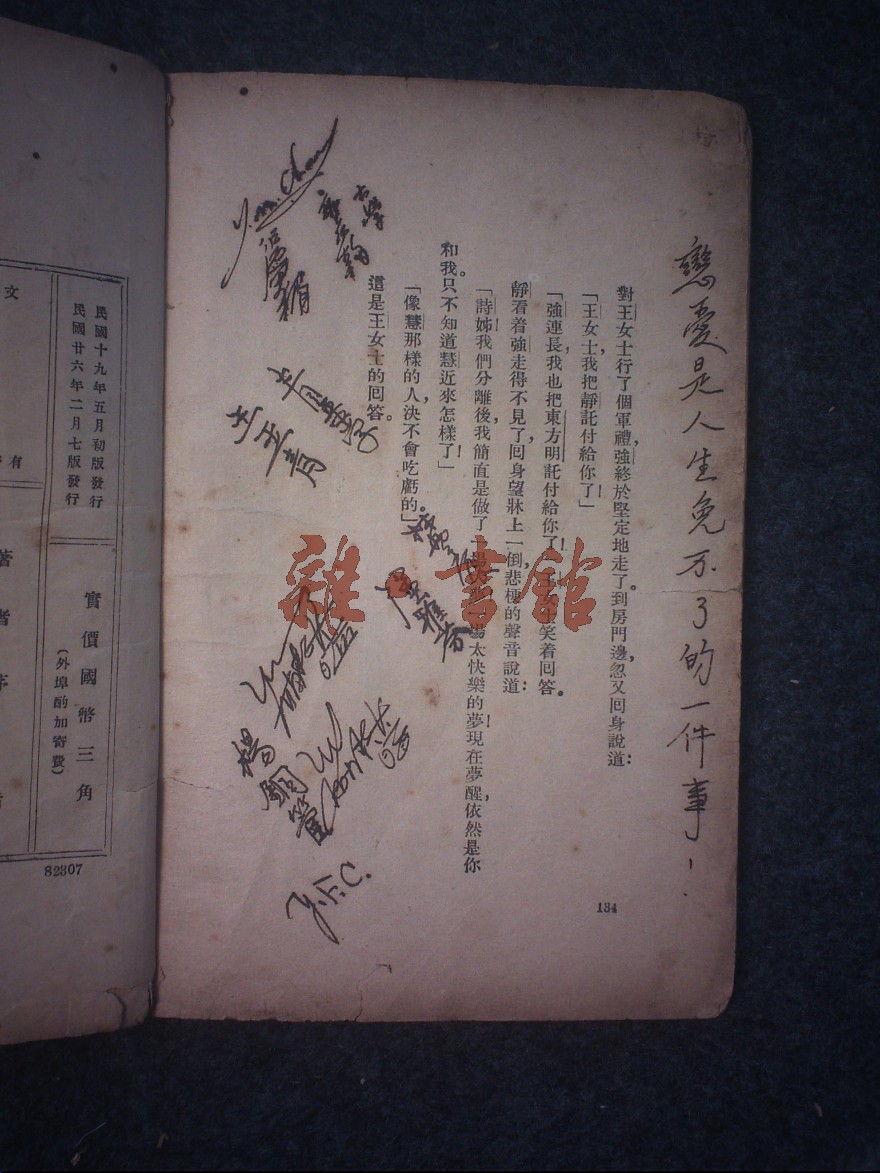 戀愛是人生免不了的一件事！
對王女士行了個軍禮，強終於堅定地走了。到房門邊，忽又回身說道：
「王女士，我把靜託付給你了！」
「強連長，我也把東方明託付給你了！」王女士笑着回答。
靜看着強走得不見了，回身望牀上一倒，悲梗的聲音說道：
「詩姊！我們分離後，我簡直是做了一場大夢！一場太快樂的夢！現在夢醒，依然是你
和我。只不知道慧近來怎樣了！」
「像慧那樣的人，決不會吃虧的。」
這是王女士的回答。
134
楊
鋼
Y.F.C.
雜·書館
民國十九年五月初版發行
民國廿六年二月七版發行
實價國幣三角
（外埠酌加寄費）
文
有
著者
82307